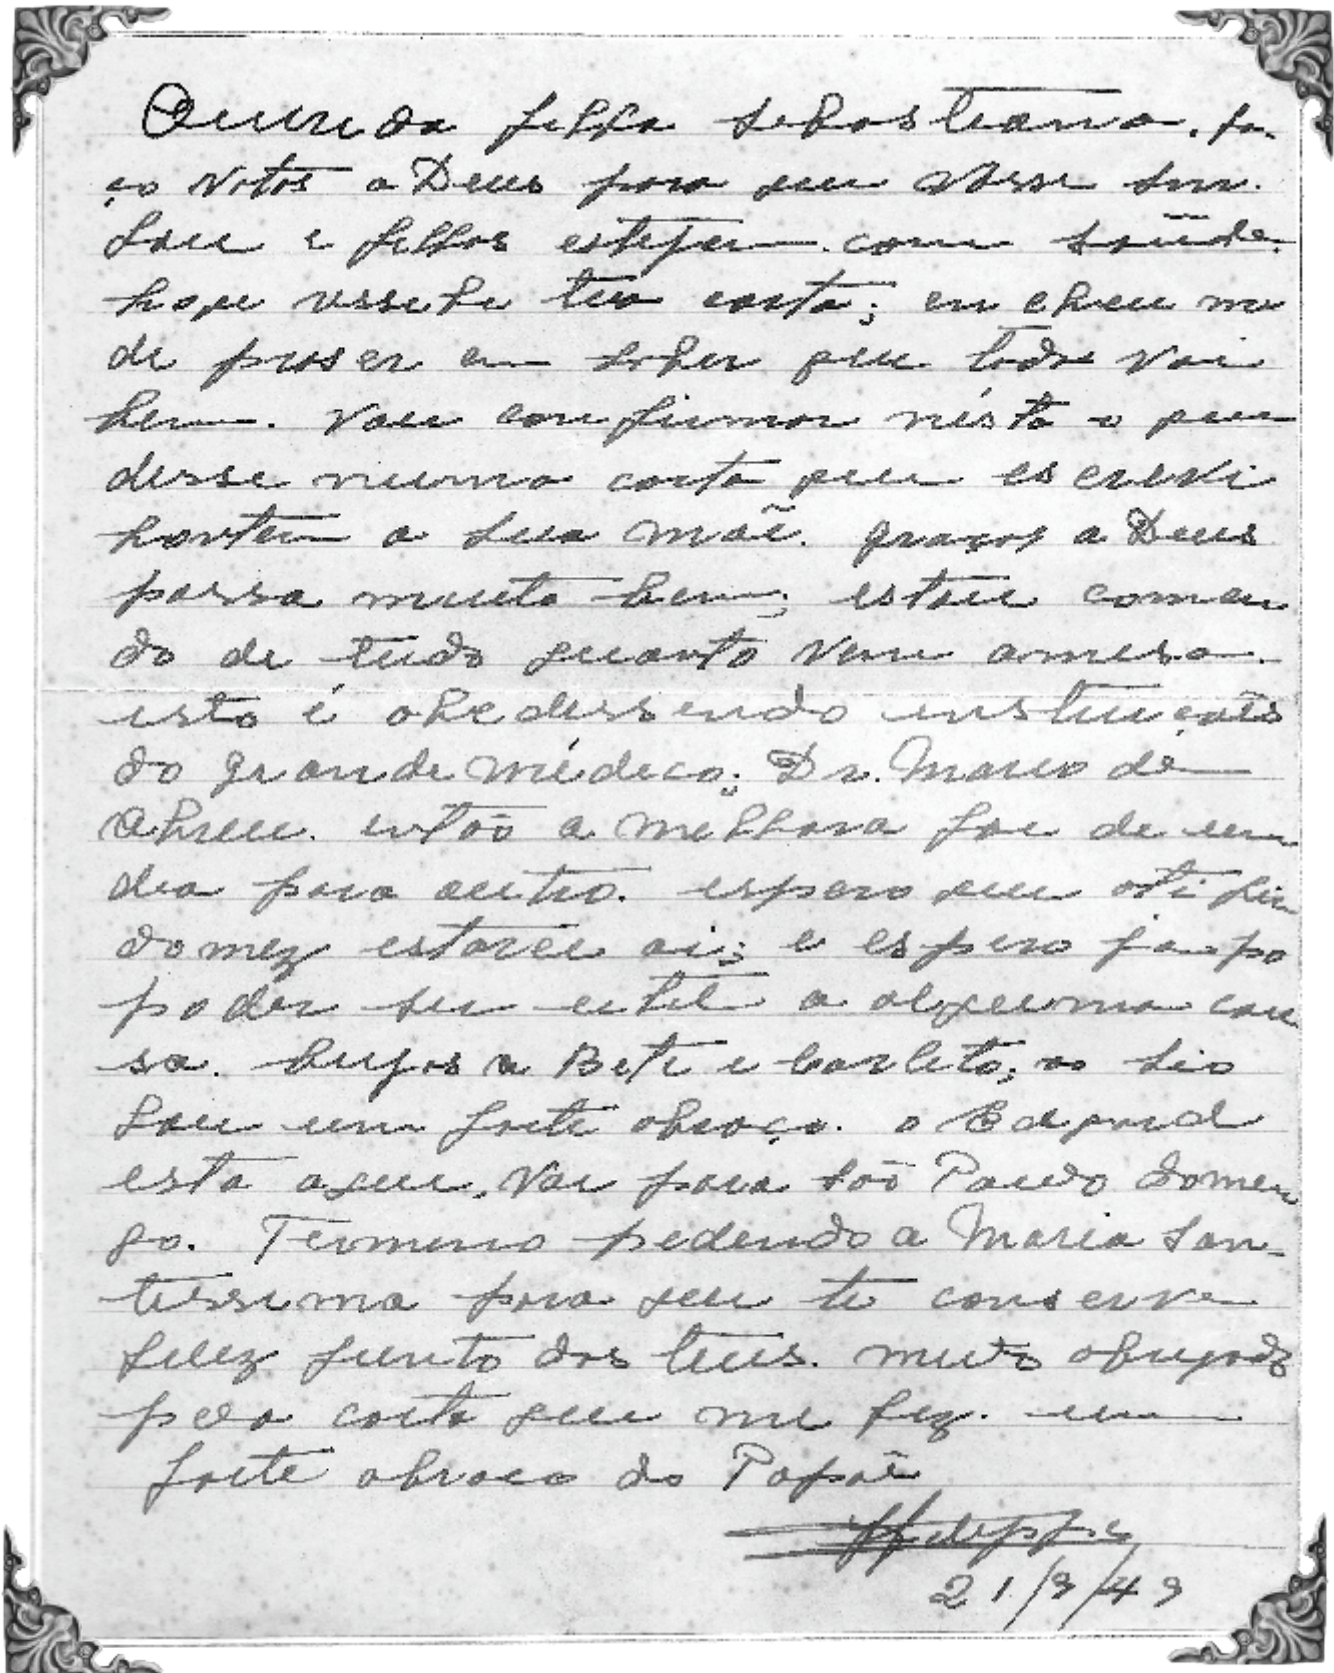 Querida filha Sebastiana, fa-
ço votos a Deus para que
e filhos estejam com saúde.
hoje ressebi tua carta; en cheu me
de praser em saber que todos vai
bem. Vou confirmar nésta o que
disse numa carta que escrevi
hontem a sua mãe. graças a Deus
passa muito bem; estou comen
do de tudo quanto vem amesa.
isto é obedessendo instruções
do grande médico; Dr. Mario de
Abreu. então a melhora foi de um
dia para outro. espero que até fim
do mez estarei ai; e espero ja po
poder ser util a alguma cou
sa. beijos a Beti e Carlito; ao
um forte abraço. o Edgard
esta aqui, vai para São Paulo domin
go. Termino pedindo a Maria San-
tissima para que te conserve
feliz junto dos teus. muito obrigado
pela carta que me fez. um
forte abraço do Papai
21/9/49